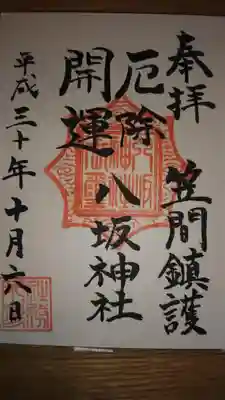 奉拝 笠間鎮護
厄除 八坂神社
開運
平成三十年十月六日